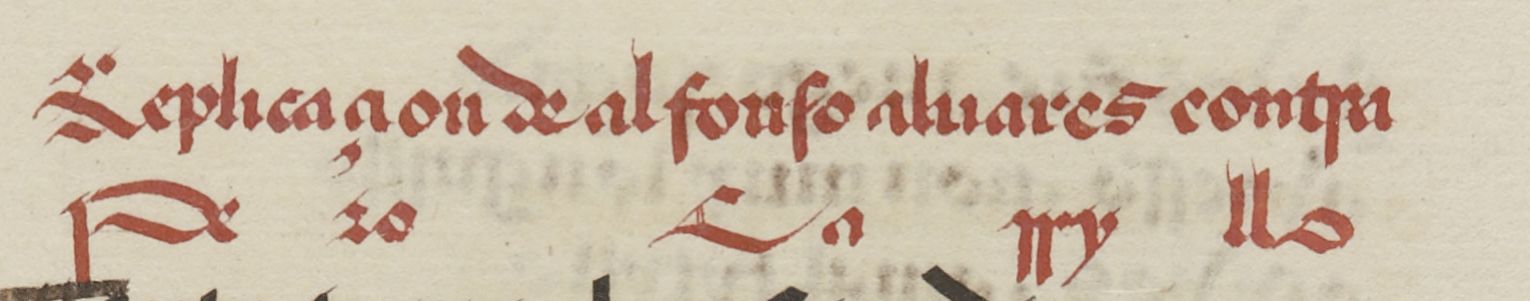 Replicaçion de alfonso aluares contra
Pe ro Ca rry llo